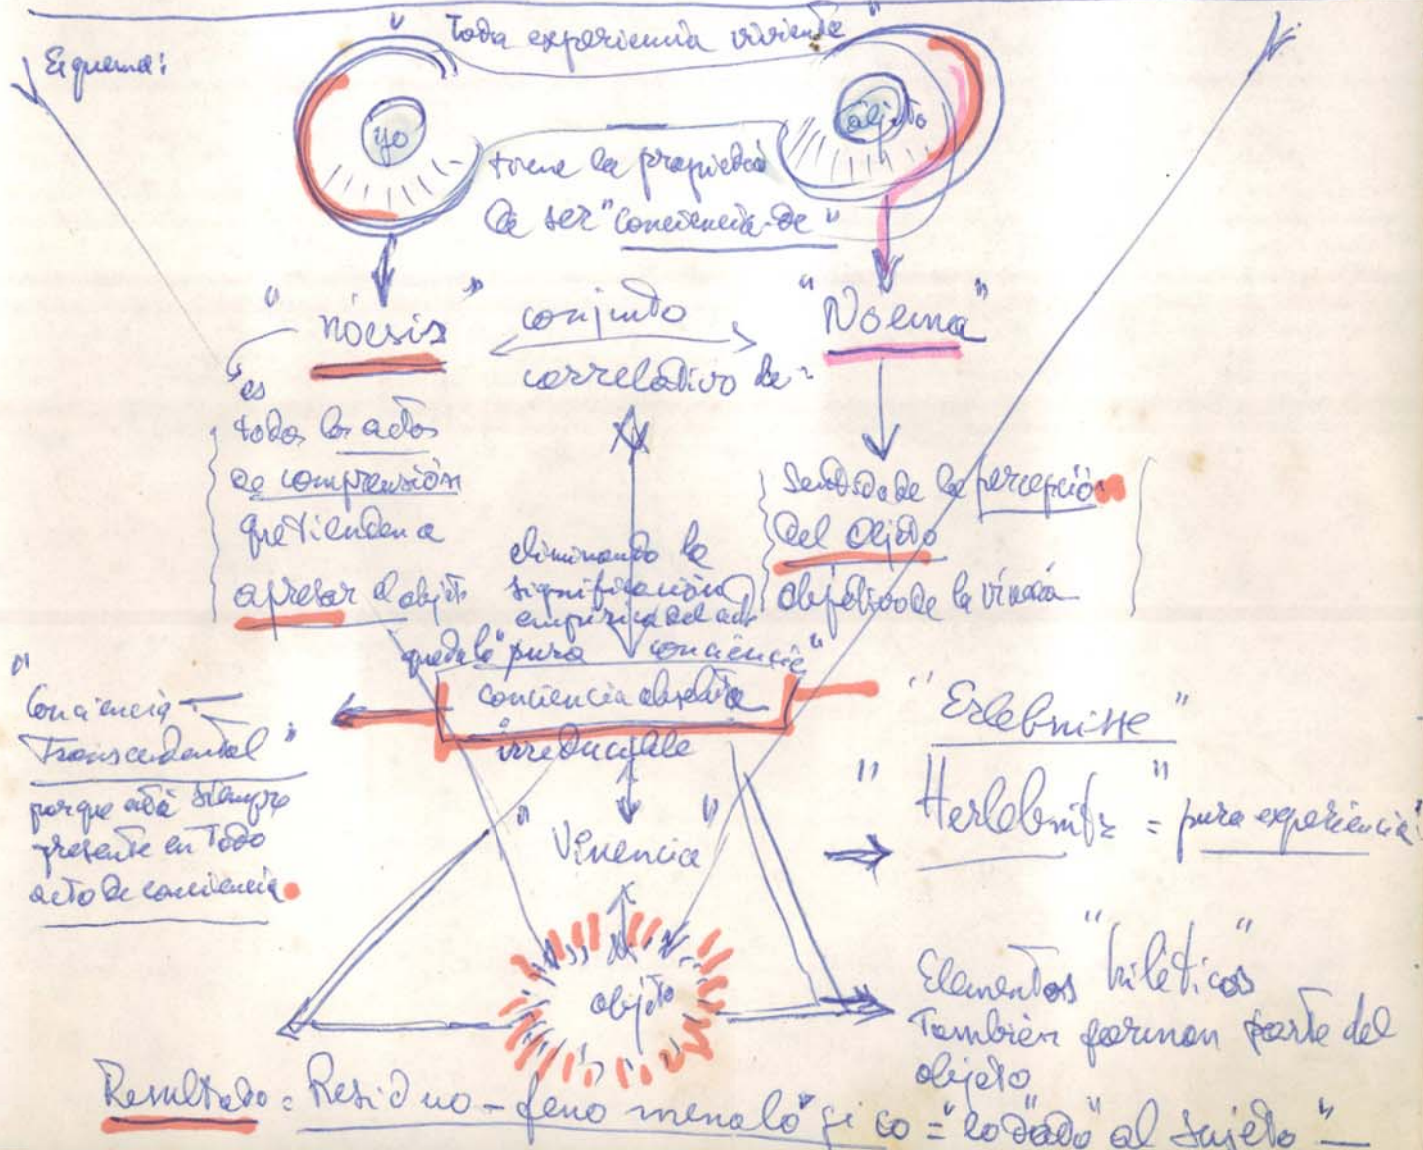 " Toda experiencia viviente "
Esquema:
yo
objeto
tiene la propiedad
de ser "conciencia-de"
" nóesis "
conjunto
correlativo de:
"Noema"
es
todos los actos
de comprensión
que tienden a
apresar el objeto
eliminando la
significación
empírica del
queda la "pura conciencia"
conciencia absoluta
irreducible
Sentido de la percepción
del objeto
objetivo de la
"
Conciencia
Transcendental "
porque está siempre
presente en Todo
acto de conciencia.
" Vivencia "
"Erlebnisse"
" Herlebnitz " = pura experiencia
objeto
Elementos "hiléticos"
También forman parte del
objeto
Resultado = Residuo-fenomenológico = "lo dado" al sujeto"